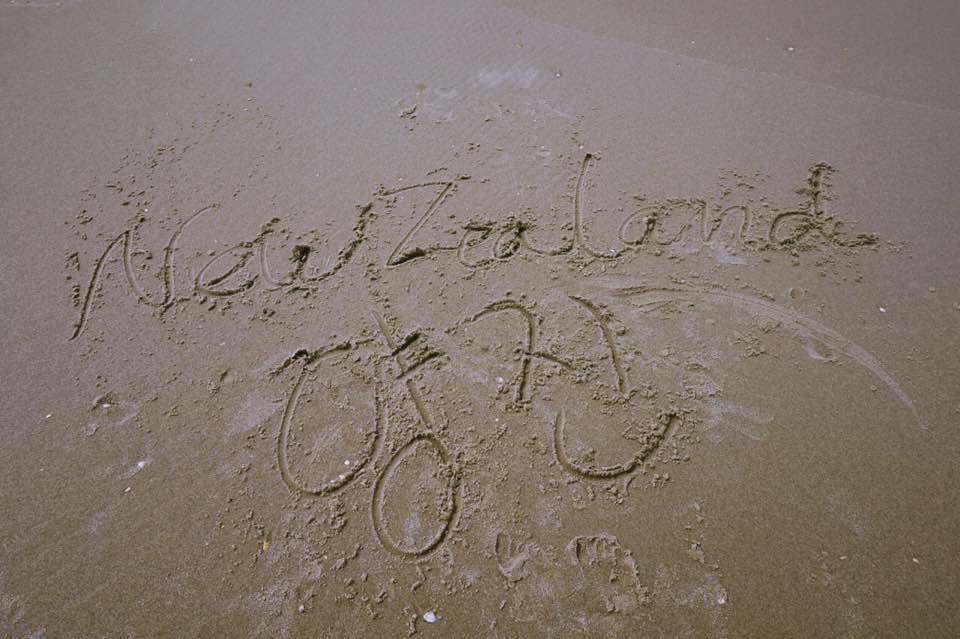 New Zealand
양건